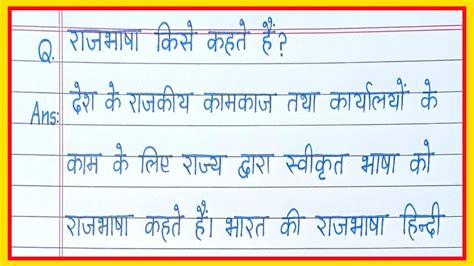 Q. राजभाषा किसे कहते हैं?
Ans: देश के राजकीय कामकाज तथा कार्यालयों के
काम के लिए राज्य द्वारा स्वीकृत भाषा को
राजभाषा कहते हैं। भारत की राजभाषा हिन्दी